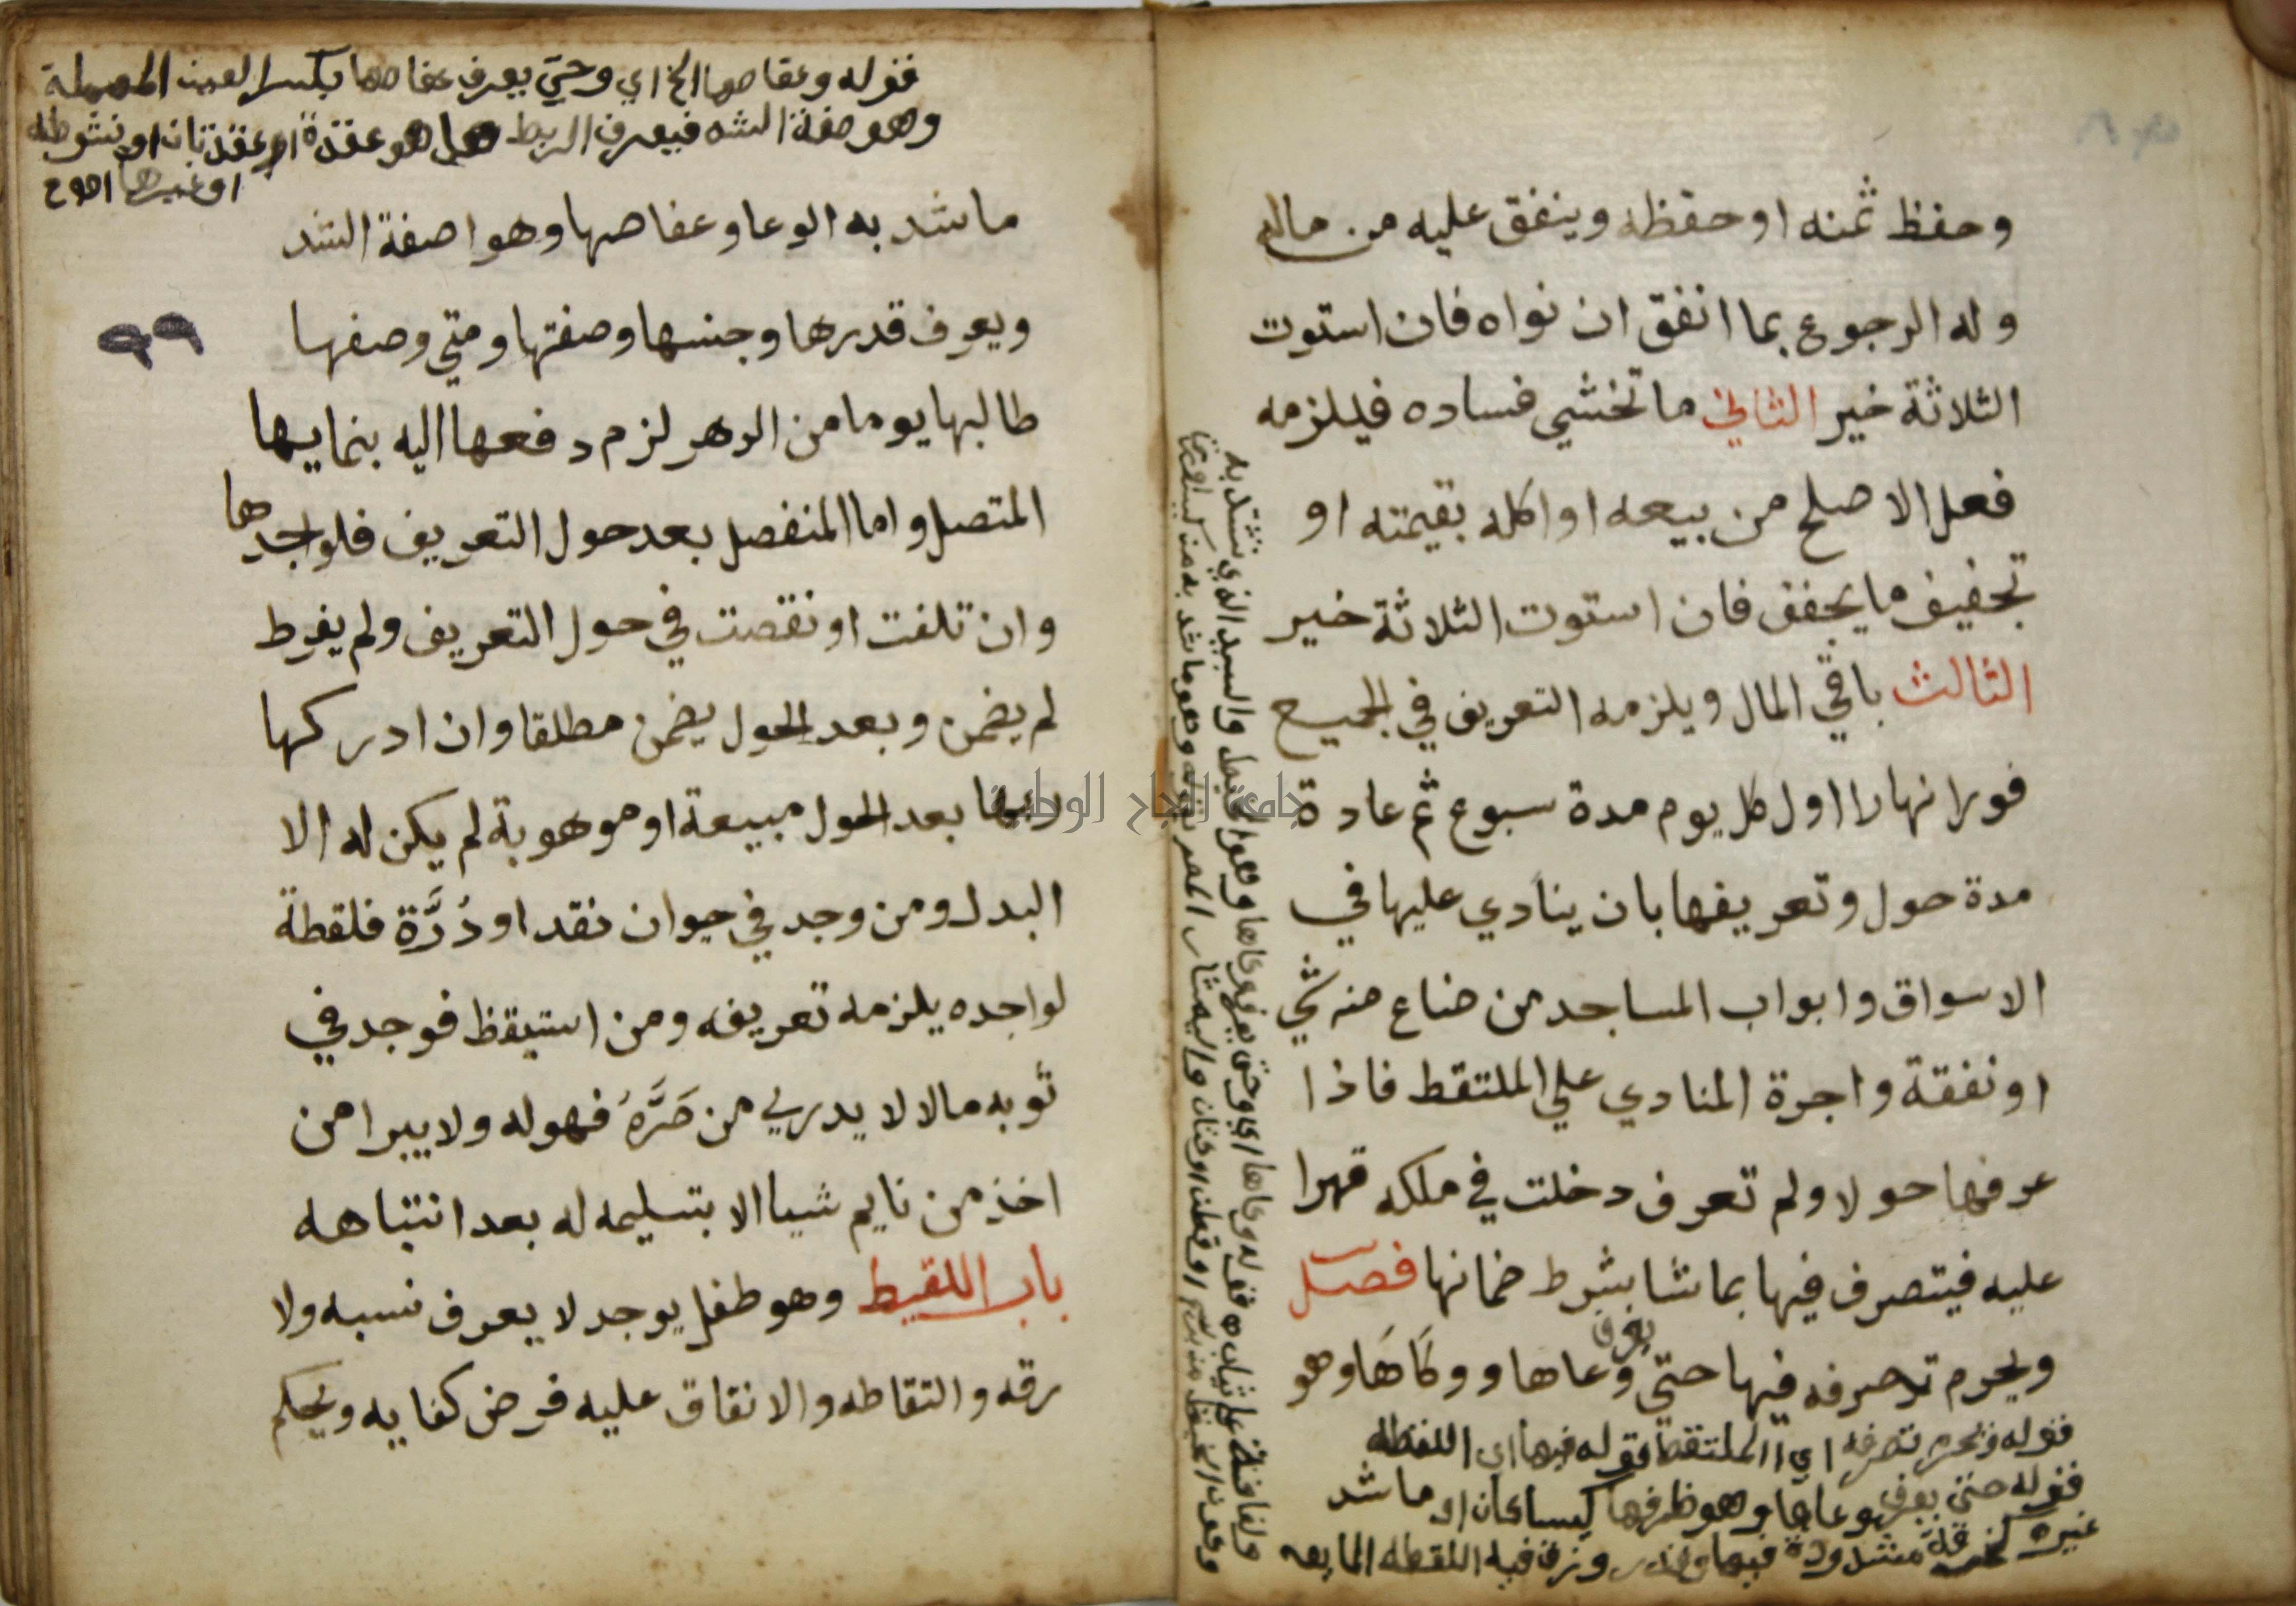 وحفظ ثمنه او حفظه وينفق عليه من ماله
وله الرجوع بما انفق ان نواه فان استوت
الثلاثة خير الثاني ما يخشي فساده فيلزمه
فعل الاصلح من بيعه او اكله بقيمته او
تجفيف ما يجفف فان استوت الثلاثة خير
الثالث باقي المال ويلزمه التعريف في الجميع
فورا نهارا اول كل يوم مدة سبوع ثم عادة
مدة حول وتعريفها بان ينادي عليها في
الاسواق وابواب المساجد من ضاع منه شي
او نفقة واجرة المنادي علي الملتقط فاذا
عرفها حولا ولم تعرف دخلت في ملكه قهرا
عليه فيتصرف فيها بما شا بشرط ضمانها فصل
ويحرم تصرفه فيها حتي يعرف وعاها ووكاها وهو
قوله ويحرم تصرفه اي الملتقط قوله فيها اي اللقطه
قوله حتي يعرف وعاها وهو ظرفها كيسا كان او ما شد
غيره كخرقة مشدودة فيها وقدر وزق فيه اللقطه المايعه
قوله وكاها اي وحتي يعرف وكاها وهو الحبل والسير الذي تشد به
قوله وعفاصها الخ اي وحتي يعرف عفاصها بكسر العين المهملة
وهو صفة الشد فيعرف الربط هل هو عقدة او عقدتان او انشوطه
او غيرها اهـ م ح
ما شد به الوعا وعفاصها وهو اصفة الشد
ويعرف قدرها وجنسها وصفتها ومتي وصفها
طالبها يوما من الدهر لزم دفعها اليه بنمايها
المتصل واما المنفصل بعد حول التعريف فلواجدها
وان تلفت او نقصت في حول التعريف ولم يفرط
لم يضمن وبعد الحول يضمن مطلقا وان ادركها
ربها بعد الحول مبيعة او موهوبة لم يكن له الا
البدل ومن وجد في حيوان نقد او دُرَّة فلقطة
لواجده يلزمه تعريفه ومن استيقظ فوجد في
ثوبه مالا لا يدري من صَرَّهُ فهو له ولا يبرا من
اخذ من نايم شيا الا بتسليمه له بعد انتباهه
باب اللقيط وهو طفل يوجد لا يعرف نسبه ولا
رقه والتقاطه والانفاق عليه فرض كفايه ويحكم
٩٩
جامعة النجاح الوطنية